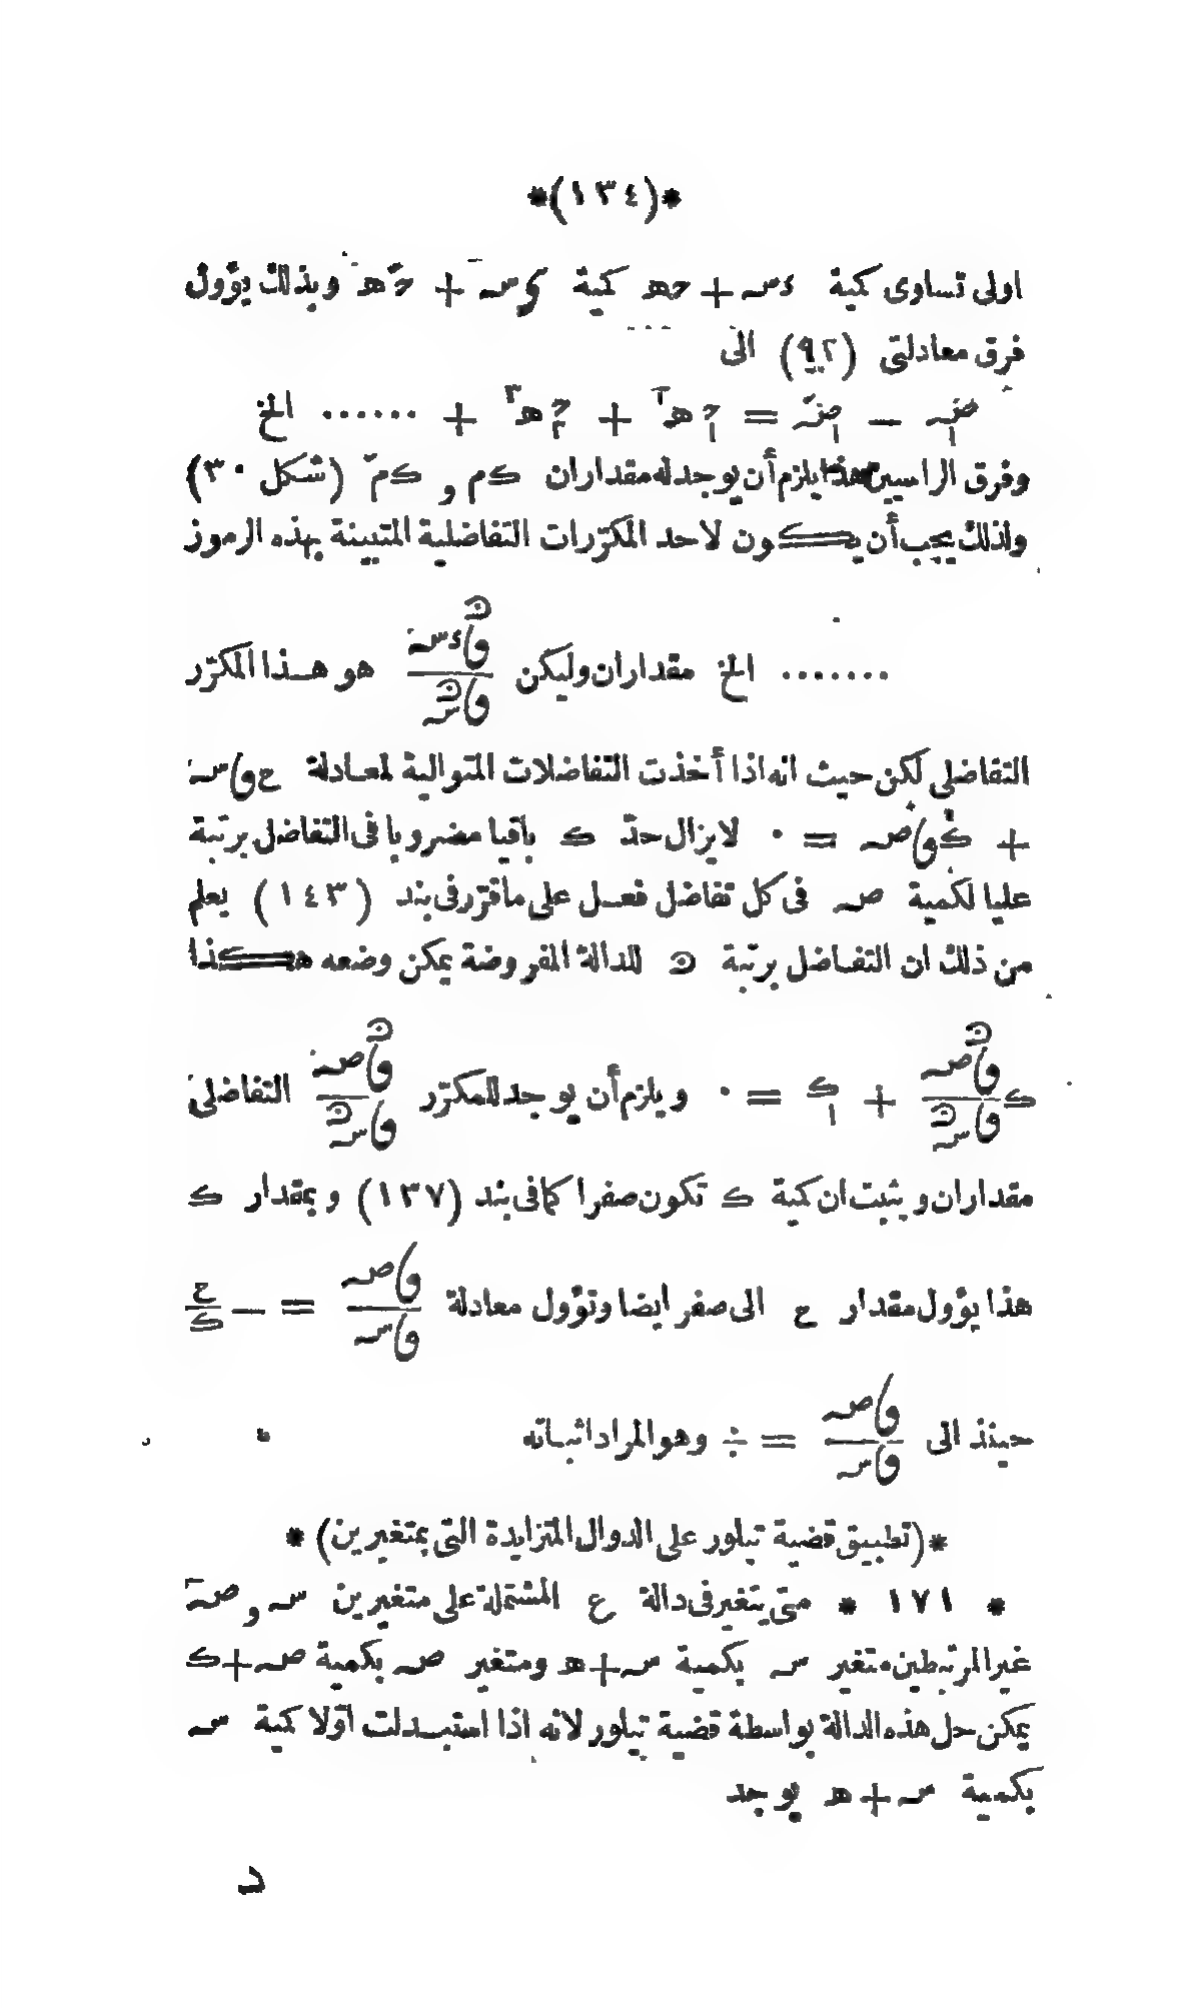 *(١٣٤)*
اولى تساوى كمية ءس + حھ كمية ءَس + حَھ وبذلك يؤول
فرق معادلتى (٩٢) الى
ضہ١ - ضہَ١ = حَ١ ھ٢ + حَ٢ ھ٣ + ...... الخ
وفرق الراسين هذا يلزم أن يوجد له مقداران كم و كمَ (شكل ٣٠)
ولذلك يجب أن يكون لاحد المكررات التفاضلية المتبينة بهذه الرموز
....... الخ مقداران وليكن هو هذا المكرّر
التفاضلى لكن حيث انه اذا أخذت التفاضلات المتوالية لمعادلة ع و٨س
+ ك و٨ص = ٠ لا يزال حدّ ك باقيا مضروبا فى التفاضل برتبة
عليا لكمية ص فى كل تفاضل فعلى ماقرّر فى بند (١٤٣) يعلم
من ذلك ان التفاضل برتبة ن للدالة المفروضة يمكن وضعه هكذا
ك و٨نص/و٨سن + ك١ = ٠ ويلزم أن يوجد للمكرّر و٨نص/و٨سن التفاضلى
مقداران ويثبت ان كمية ك تكون صفرا كما فى بند (١٣٧) وبمقدار ك
هذا يؤول مقدار ع الى صفر ايضا وتؤول معادلة و٨ص/و٨س = - ع/ك
حينئذ الى و٨ص/و٨س = ٠/٠ وهو المراد اثباته
*(تطبيق قضية تيلور على الدوال المتزايدة التى بمتغيرين)*
* ١٧١ * متى يتغير فى دالة ع المشتملة على متغيرين س و ص
غير المرتبطين متغير س بكمية س + ھ ومتغير ص بكمية ص + ك
يمكن حل هذه الدالة بواسطة قضية تيلور لانه اذا استبدلت اوّلا كمية س
بكمية س + ھ يوجد
د